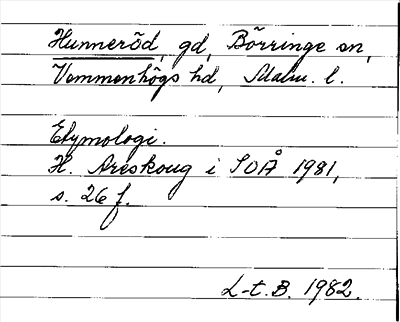 Hunneröd, gd, Börringe sn,
Vemmenhögs hd, Malm. l.
Etymologi.
H. Areskoug i SOÅ 1981,
s. 26 f.
L-t. B. 1982.